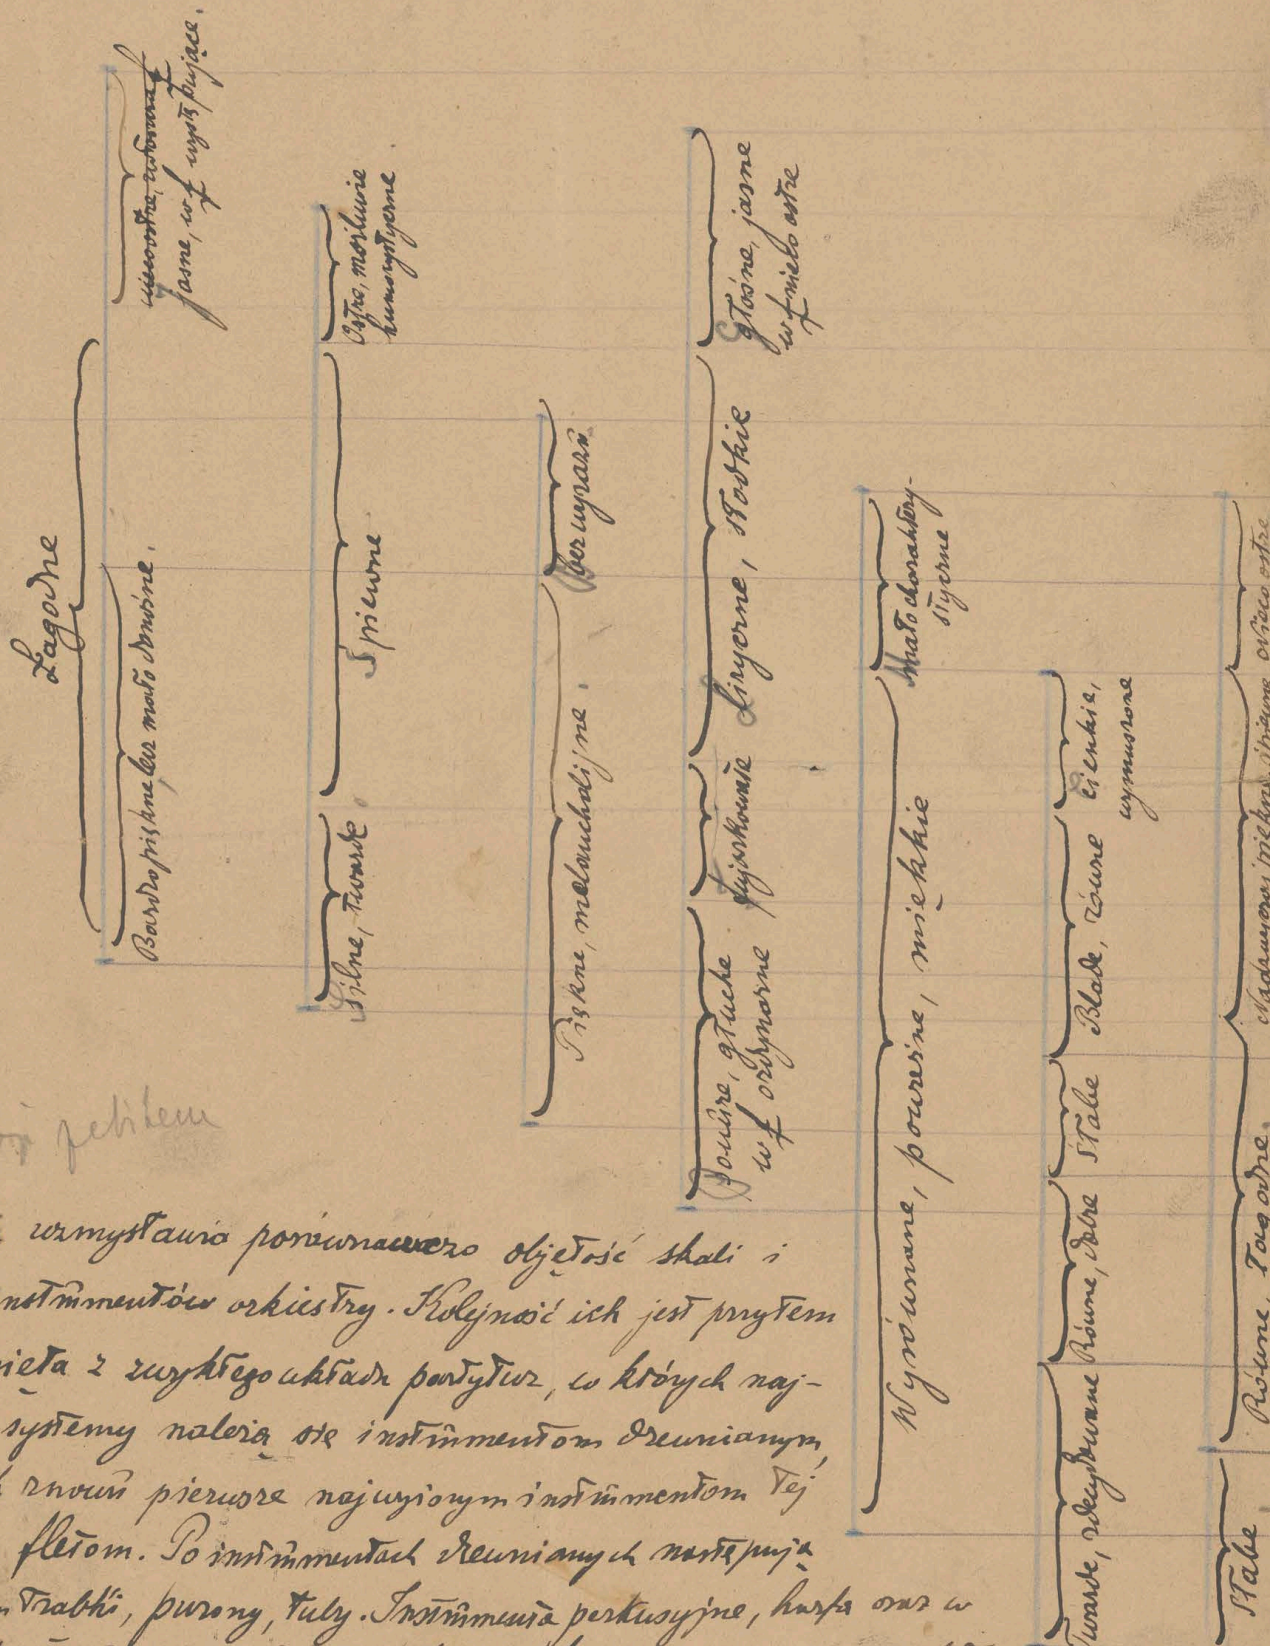 Łagodne
Bardzo piękne lecz mało donośne.
jasne, w f występujące.
Silne, twarde
Śpiewne
Ostre, możliwie
humorystyczne
Piękne, melancholijne.
bez wyrazu
Ponure, głuche
w f ordynarne
fujarkowate
Liryczne, słodkie
głośne, jasne
w f nieco ostre
Wyrównane, poważne, miękkie
Mało charaktery-
styczne
Twarde, zdecydowane
Równe, dobre
Słabe
Blade, równe
cienkie,
wymuszone
Słabe
Równe, łagodne.
Nadzwyczaj piękne, śpiewne
nieco ostre
wzmysławia porównawczo objętość skali i
instrumentów orkiestry. Kolejność ich jest przytem
zwykłego układu partytur, w których naj-
systemy należą się instrumentom drewnianym,
znowu pierwsze najwyższym instrumentom tej
fletom. Po instrumentach drewnianych następują
trąbki, puzony, tuby. Instrumenta perkusyjne, harfa oraz w